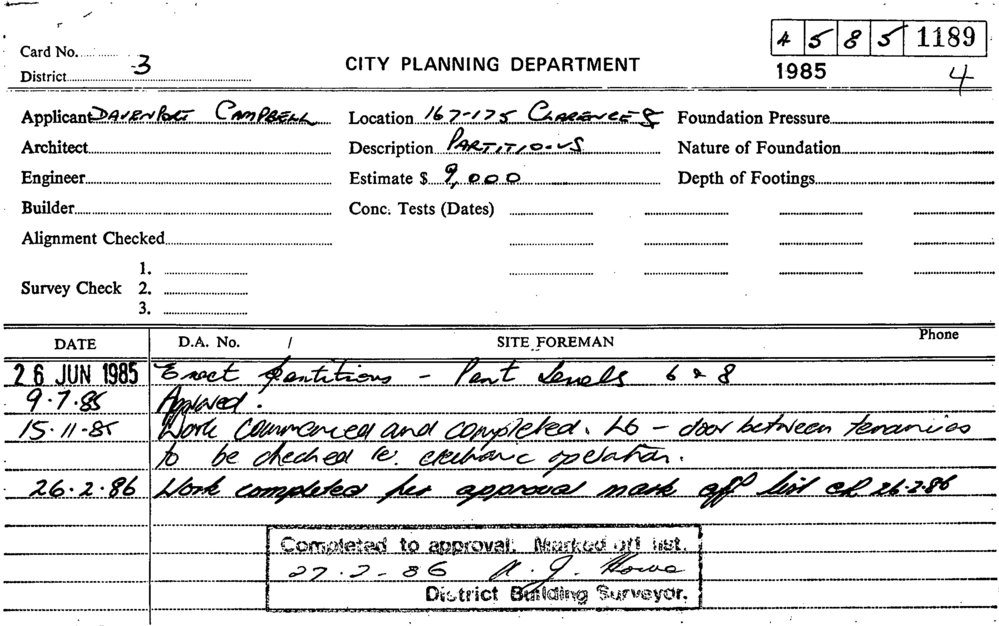 Card No.
4 5 8 5 1189
District 3
CITY PLANNING DEPARTMENT
1985 4
Applicant DAVENPORT CAMPBELL Location 167-175 CLARENCE S Foundation Pressure
Architect Description PARTITIONS Nature of Foundation
Engineer Estimate $ 9,000 Depth of Footings
Builder Conc. Tests (Dates)
Alignment Checked
1.
Survey Check 2.
3.
DATE D.A. No. / SITE FOREMAN Phone
26 JUN 1985 Erect partitions - Part Levels 6 & 8
9.7.85 Approved.
15.11.85 Work commenced and completed. L6 - door between tenancies
to be checked ie. electronic operation.
26.2.86 Work completed per approval mark off list 26.2.86
Completed to approval. Marked off list.
27-2-86 Howe
District Building Surveyor.